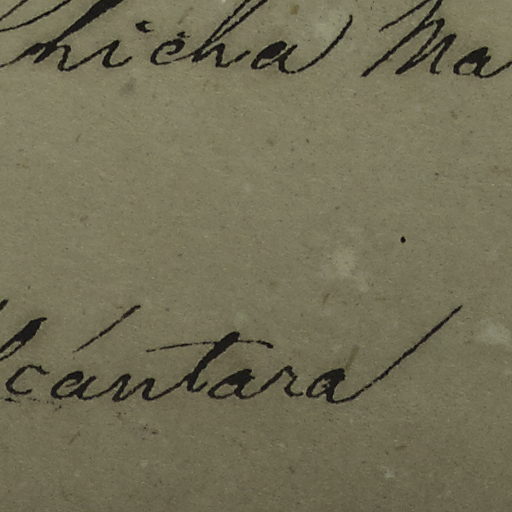 Chicha Ma
lcántara